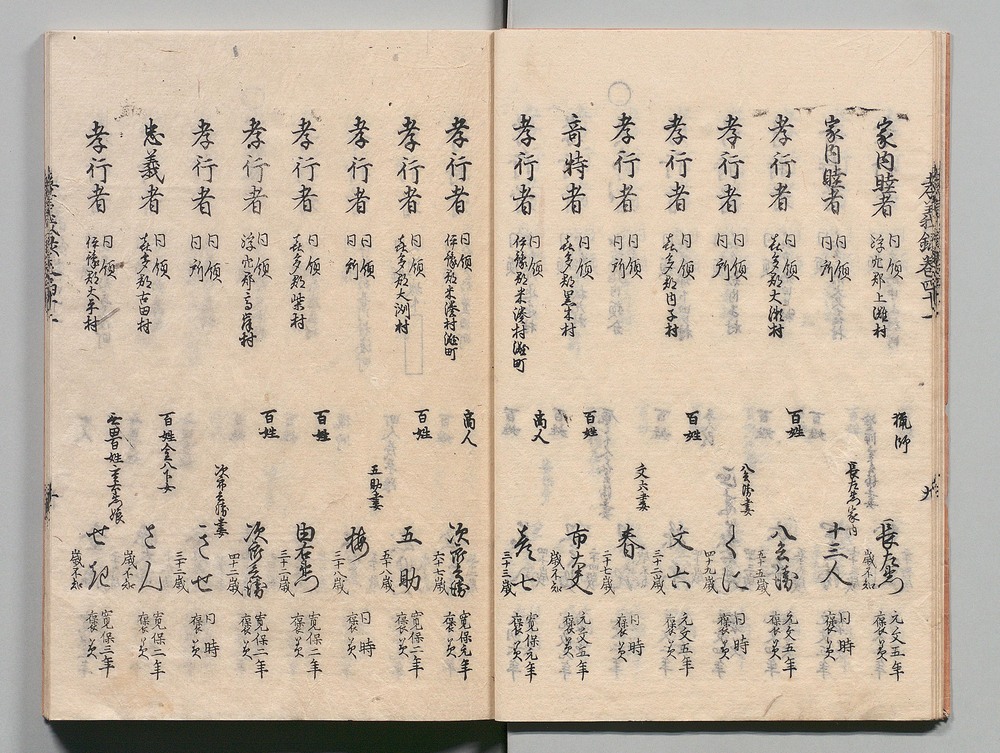 孝義録巻四十一
家内睦者 同領 浮穴郡上灘村 猟師 長左衛門 歳不知 元文五年 褒美
家内睦者 同領 同所 長左衛門家内 十三人 同時 褒美
孝行者 同領 喜多郡大瀬村 百姓 八之 五十五歳 元文五年 褒美
孝行者 同領 同所 四十九歳 同時 褒美
孝行者 同領 喜多郡内子村 百姓 文六 三十二歳 元文五年 褒美
孝行者 同領 同所 文六妻 春 二十七歳 同時 褒美
奇特者 同領 喜多郡黒木村 百姓 市太夫 歳不知 元文五年 褒美
孝行者 同領 伊豫郡米湊村灘町 商人 七 三十二歳 寛保元年 褒美
孝行者 同領 伊豫郡米湊村灘町 商人 六十歳 寛保元年 褒美
孝行者 同領 喜多郡大洲村 百姓 五助 五十八歳 寛保二年 褒美
孝行者 同領 同所 五助妻 梅 三十八歳 同時 褒美
孝行者 同領 喜多郡柴村 百姓 由右衛門 三十二歳 寛保二年 褒美
孝行者 同領 浮穴郡高岸村 百姓 四十二歳 寛保二年 褒美
孝行者 同領 同所 妻 きせ 三十二歳 同時 褒美
忠義者 同領 喜多郡古田村 百姓 さん 歳不知 寛保二年 褒美
孝行者 同領 伊豫郡大平村 百姓 娘 歳不知 寛保三年 褒美